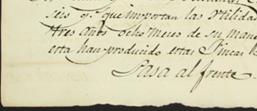 seis q.ᵉ que importan las utilidad
tres años ocho meses de su mane
esta han producido estas Fincas
Pasa al frente